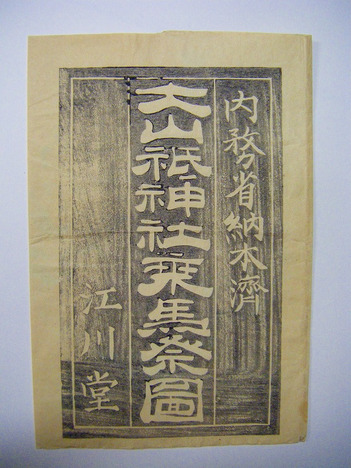 内務省納本濟
大山祇神社乘馬祭圖
江川堂